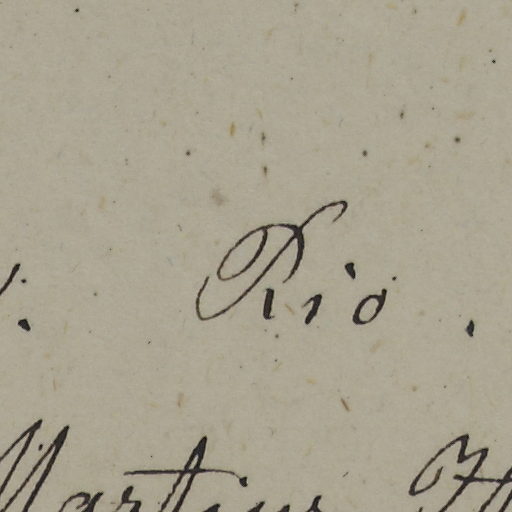 . Rio .
Martius H